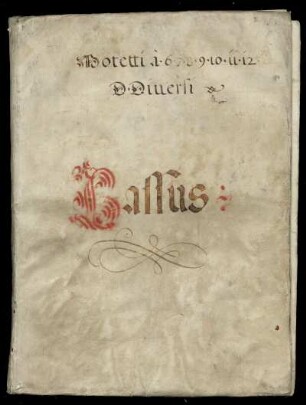 Motetti à·6·7·8·9·10·11·12
D Diuersi
Bassus: